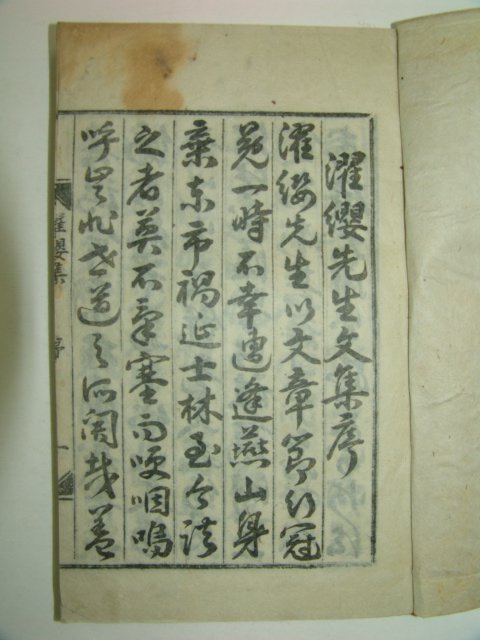 濯纓先生文集序
濯纓先生以文章節行冠
冕一時不幸遭逢燕山身
棄東市禍延士林至今談
之者莫不氣塞而哽咽嗚
呼豈非世道之所関哉蓋
濯纓集 序 一